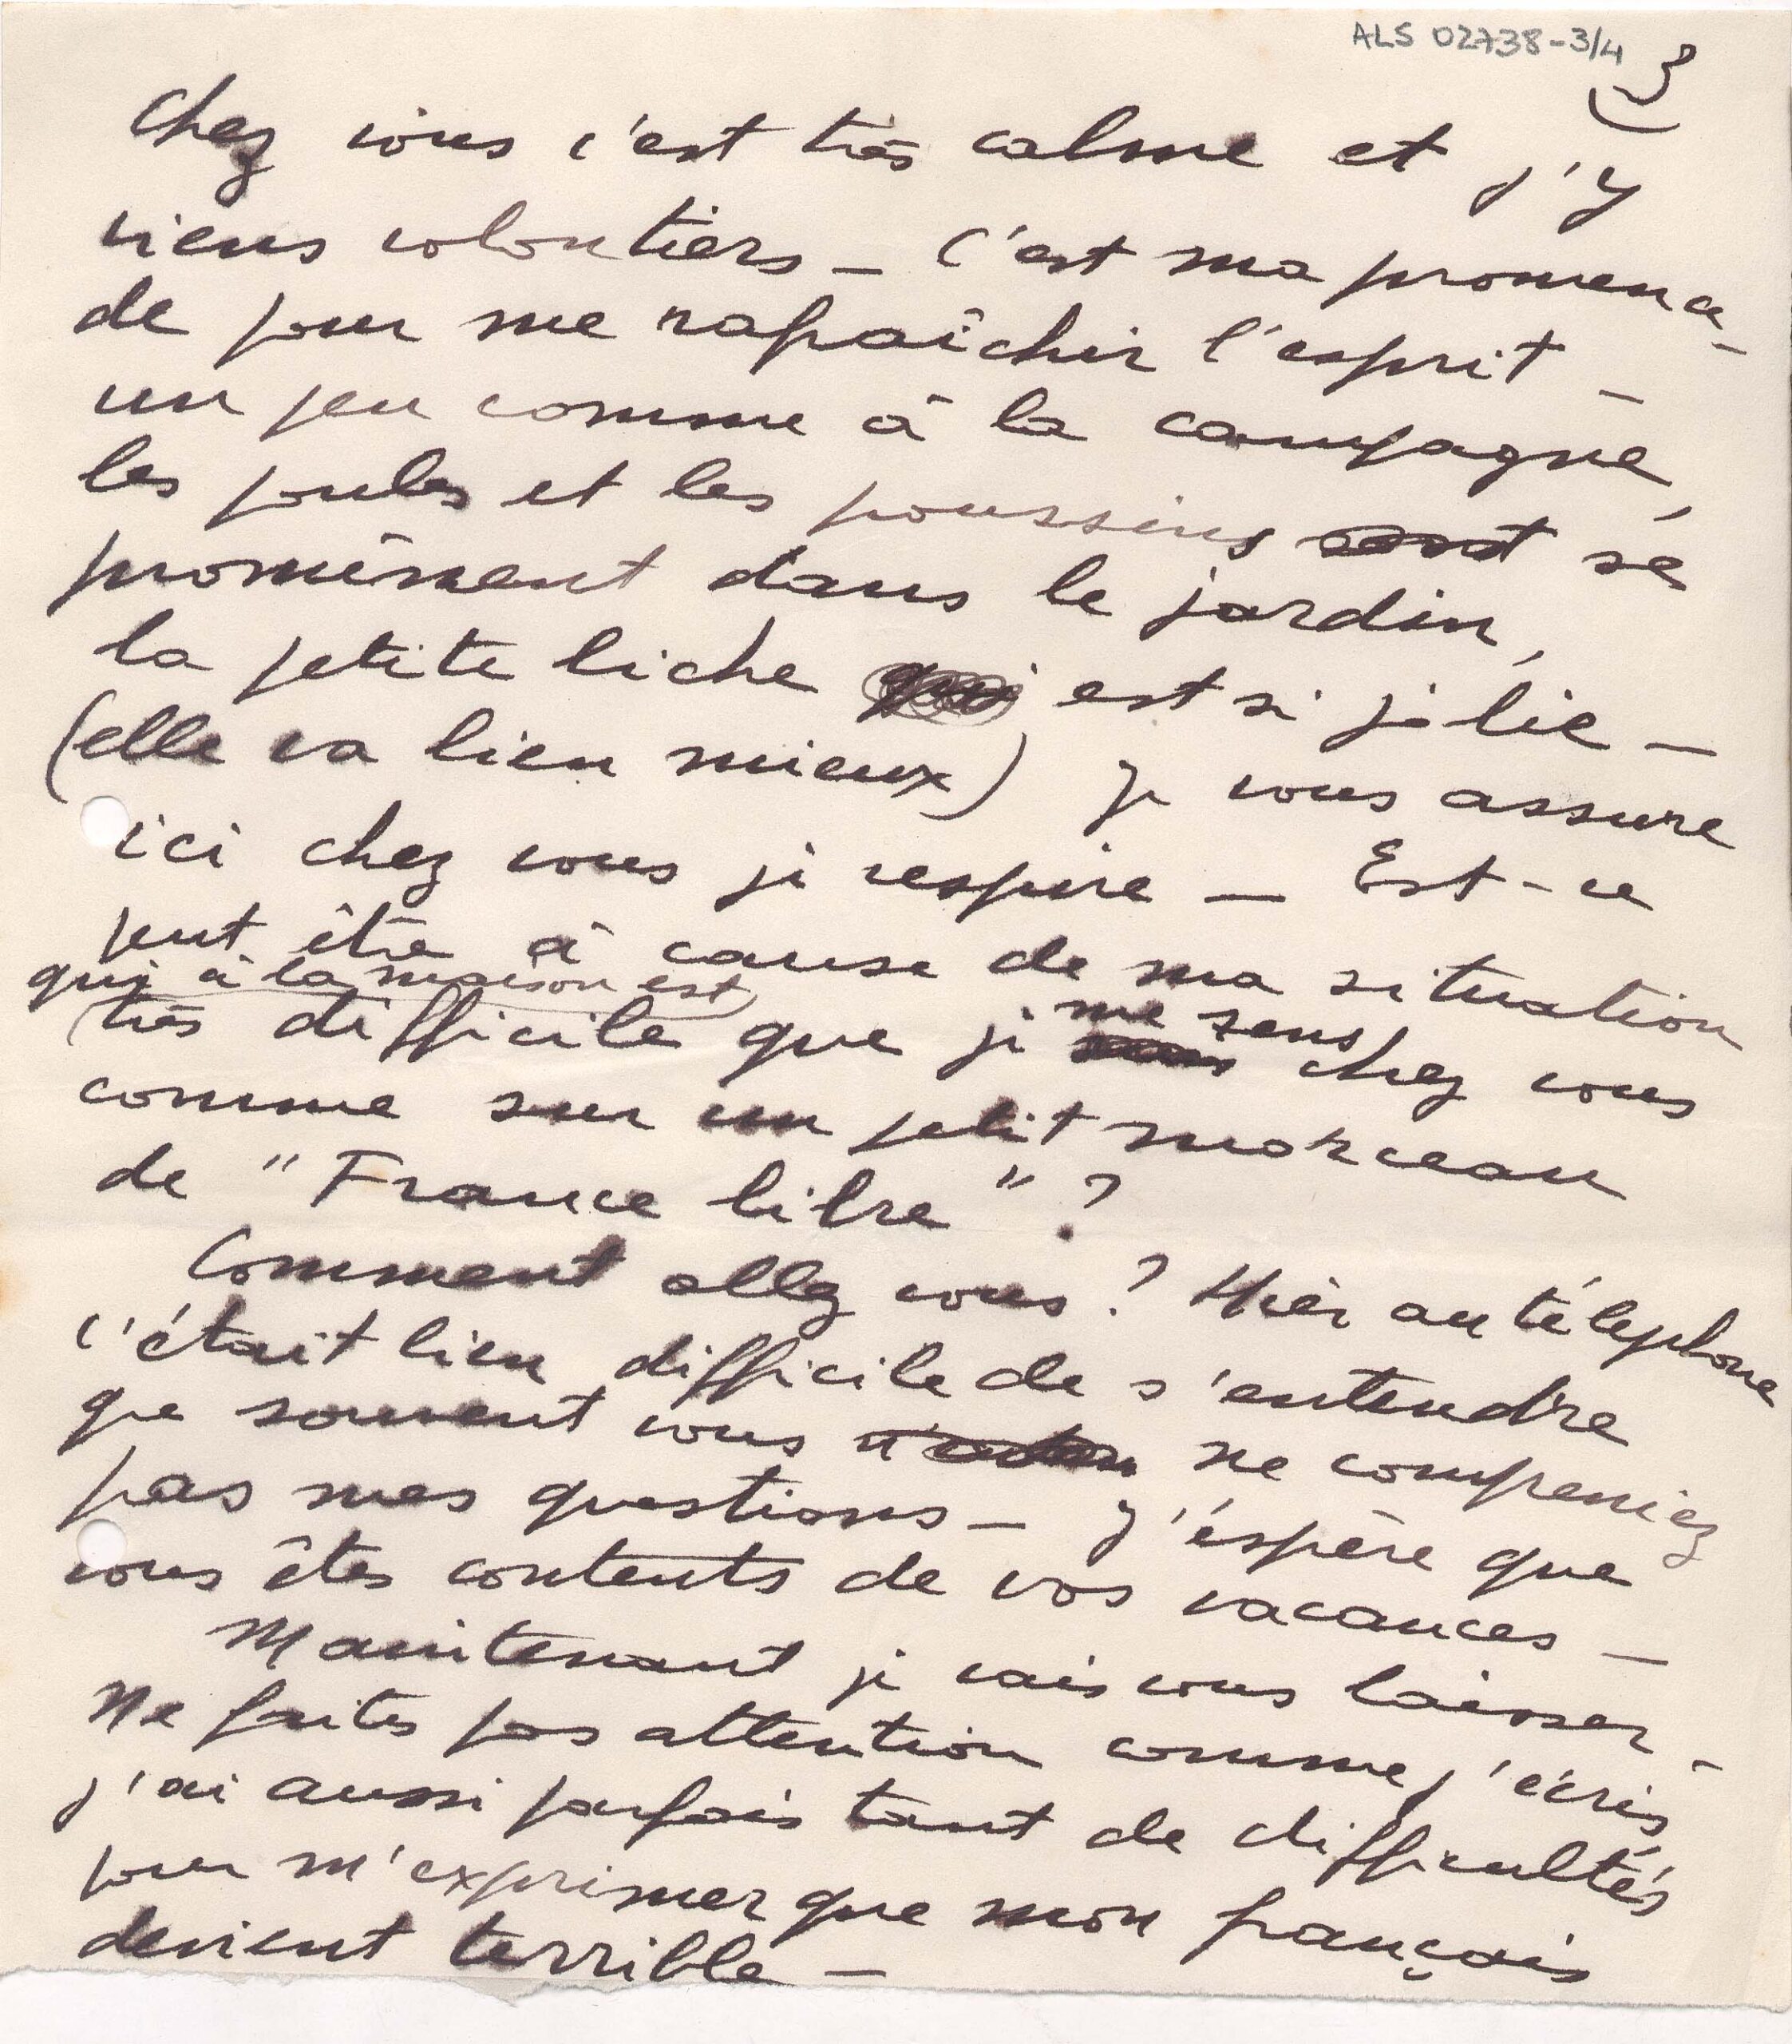 ALS 02738-3/4
3
Chez vous c'est très calme et j'y
viens volontiers – C'est ma promena-
de pour me rafraîchir l'esprit –
un peu comme à la campagne,
les poules et les poussins sont se
promènent dans le jardin,
la petite biche qui est si jolie –
(elle va bien mieux) je vous assure
ici chez vous je respire – Est-ce
peut être à cause de ma situation
qui à la maison est
très difficile que je me sens chez vous
comme sur un petit morceau
de "France libre" ?
Comment allez vous ? Hier au téléphone
c'était bien difficile de s'entendre
que souvent vous ne compreniez
pas mes questions – J'éspère que
vous êtes contents de vos vacances –
Maintenant je vais vous laisser –
Ne faites pas attention comme j'écris
j'ai aussi parfois tant de difficultés
pour m'exprimer que mon français
devient terrible –